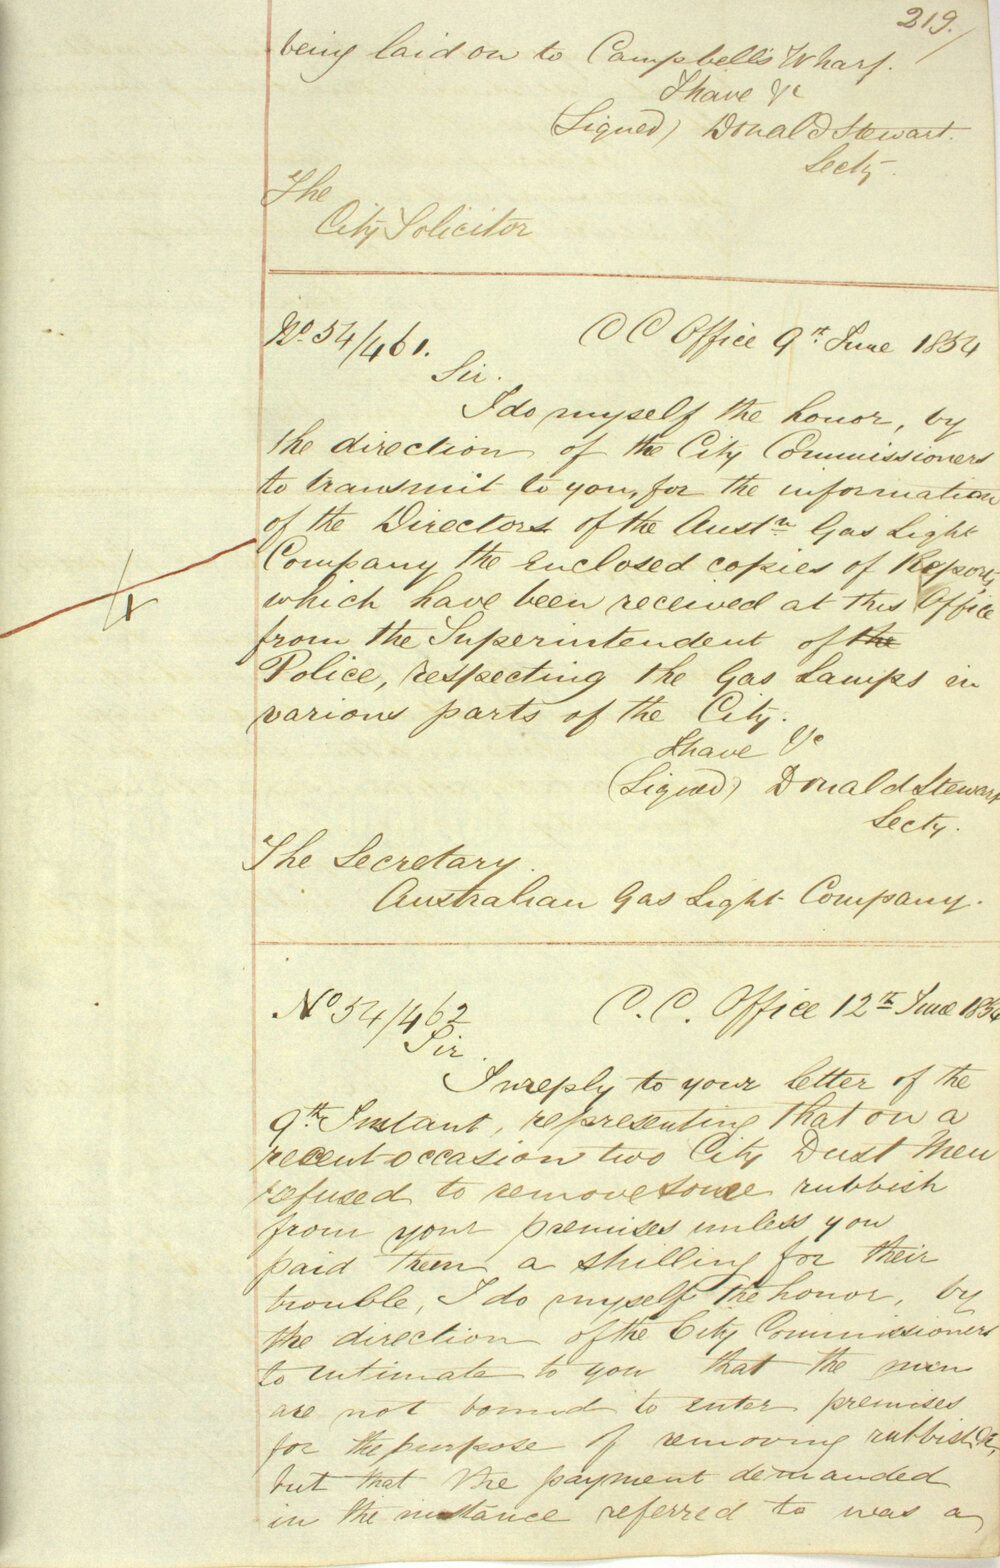 219.
being laid on to Campbell's Wharf.
I have &c
(Signed) Donald Stewart.
Secty.
The
City Solicitor
No 54/461.
C C Office 9th June 1854
Sir.
I do myself the honor, by
the direction of the City Commissioners
to transmit to you, for the information
of the Directors of the Austn Gas Light
Company the enclosed copies of Reports,
which have been received at this Office
from the Superintendent of the
Police, respecting the Gas Lamps in
various parts of the City.
I have &c
(Signed) Donald Stewart
Secty.
The Secretary.
Australian Gas Light Company.
No 54/462
C. C. Office 12th June 1854
Sir.
In reply to your letter of the
9th Instant, representing that on a
recent occasion two City Dust Men
refused to remove some rubbish
from your premises unless you
paid them a shilling for their
trouble, I do myself the honor, by
the direction of the City Commissioners
to intimate to you that the men
are not bound to enter premises
for the purpose of removing rubbish &c,
but that the payment demanded
in the instance referred to was a